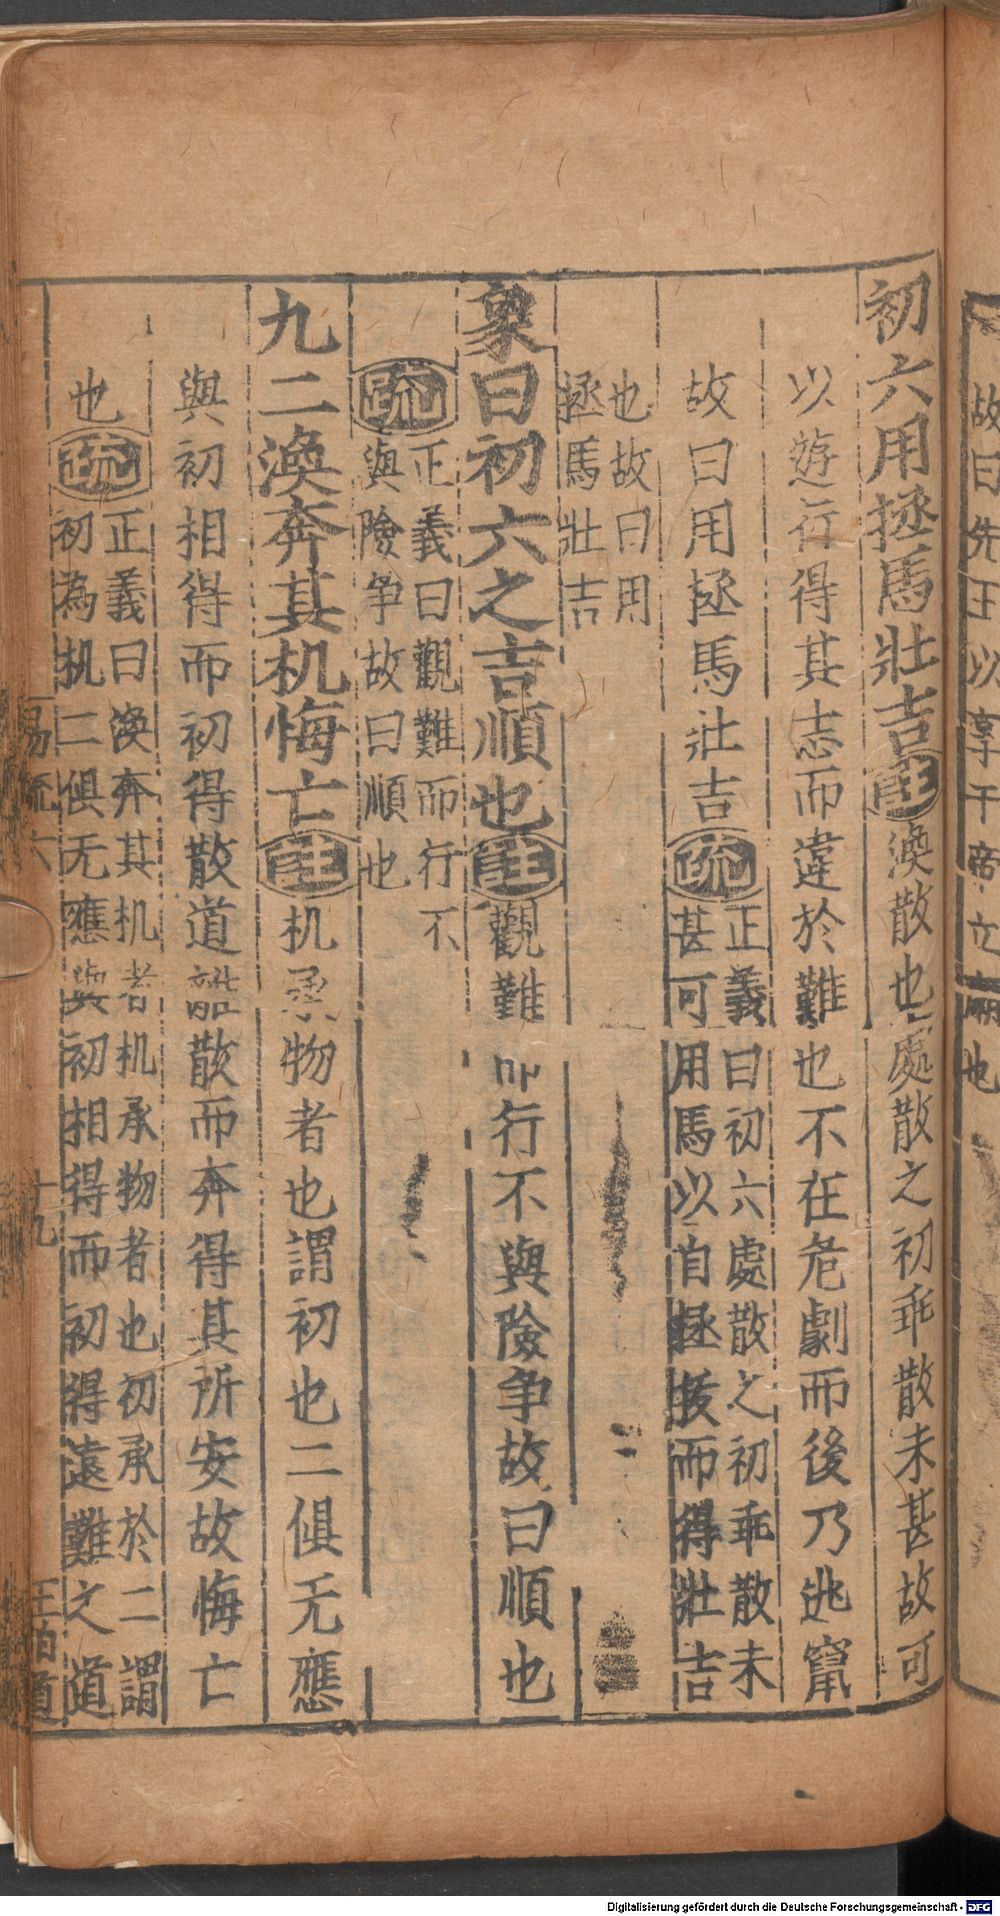 故曰先王以享于帝立廟也
初六用拯馬壯吉註渙散也處散之初乖散未甚故可
以遊行得其志而違於難也不在危劇而後乃逃竄
故曰用拯馬壯吉疏正義曰初六處散之初乖散未
甚可用馬以自拯拔而得壯吉
也故曰用
拯馬壯吉
象曰初六之吉順也註觀難而行不與險爭故曰順也
疏正義曰觀難而行不
與險爭故曰順也
九二渙奔其机悔亡註机承物者也謂初也二俱无應
與初相得而初得散道離散而奔得其所安故悔亡
也疏正義曰渙奔其机者机承物者也初承於二謂
初為机二俱无應與初相得而初得遠難之道
易疏六 十九 王伯道
Digitalisierung gefördert durch die Deutsche Forschungsgemeinschaft - DFG